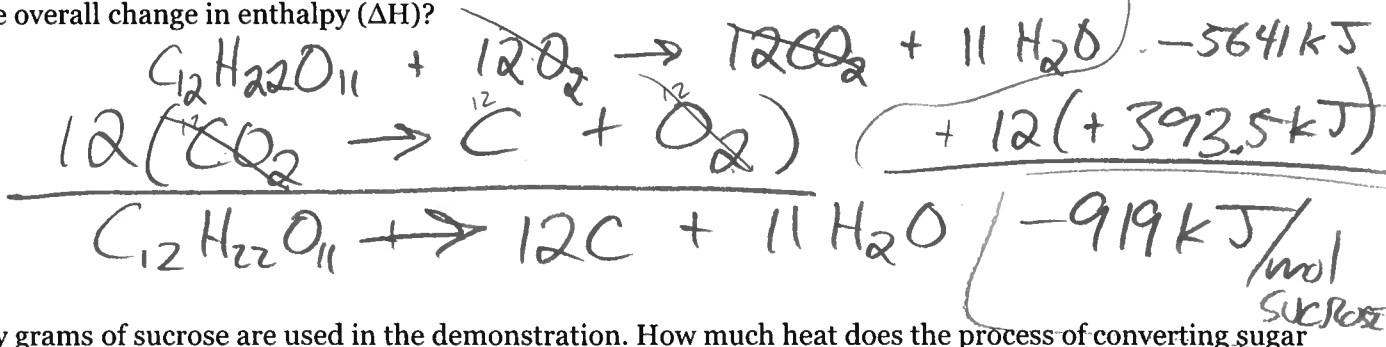 e overall change in enthalpy (ΔH)?
C₁₂H₂₂O₁₁ + 12O₂ → 12CO₂ + 11 H₂O -5641 kJ
12(¹²CO₂ → ¹²C + ¹²O₂) + 12(+393.5kJ)
C₁₂H₂₂O₁₁ → 12C + 11 H₂O -919 kJ/mol
SUCROSE
y grams of sucrose are used in the demonstration. How much heat does the process of converting sugar